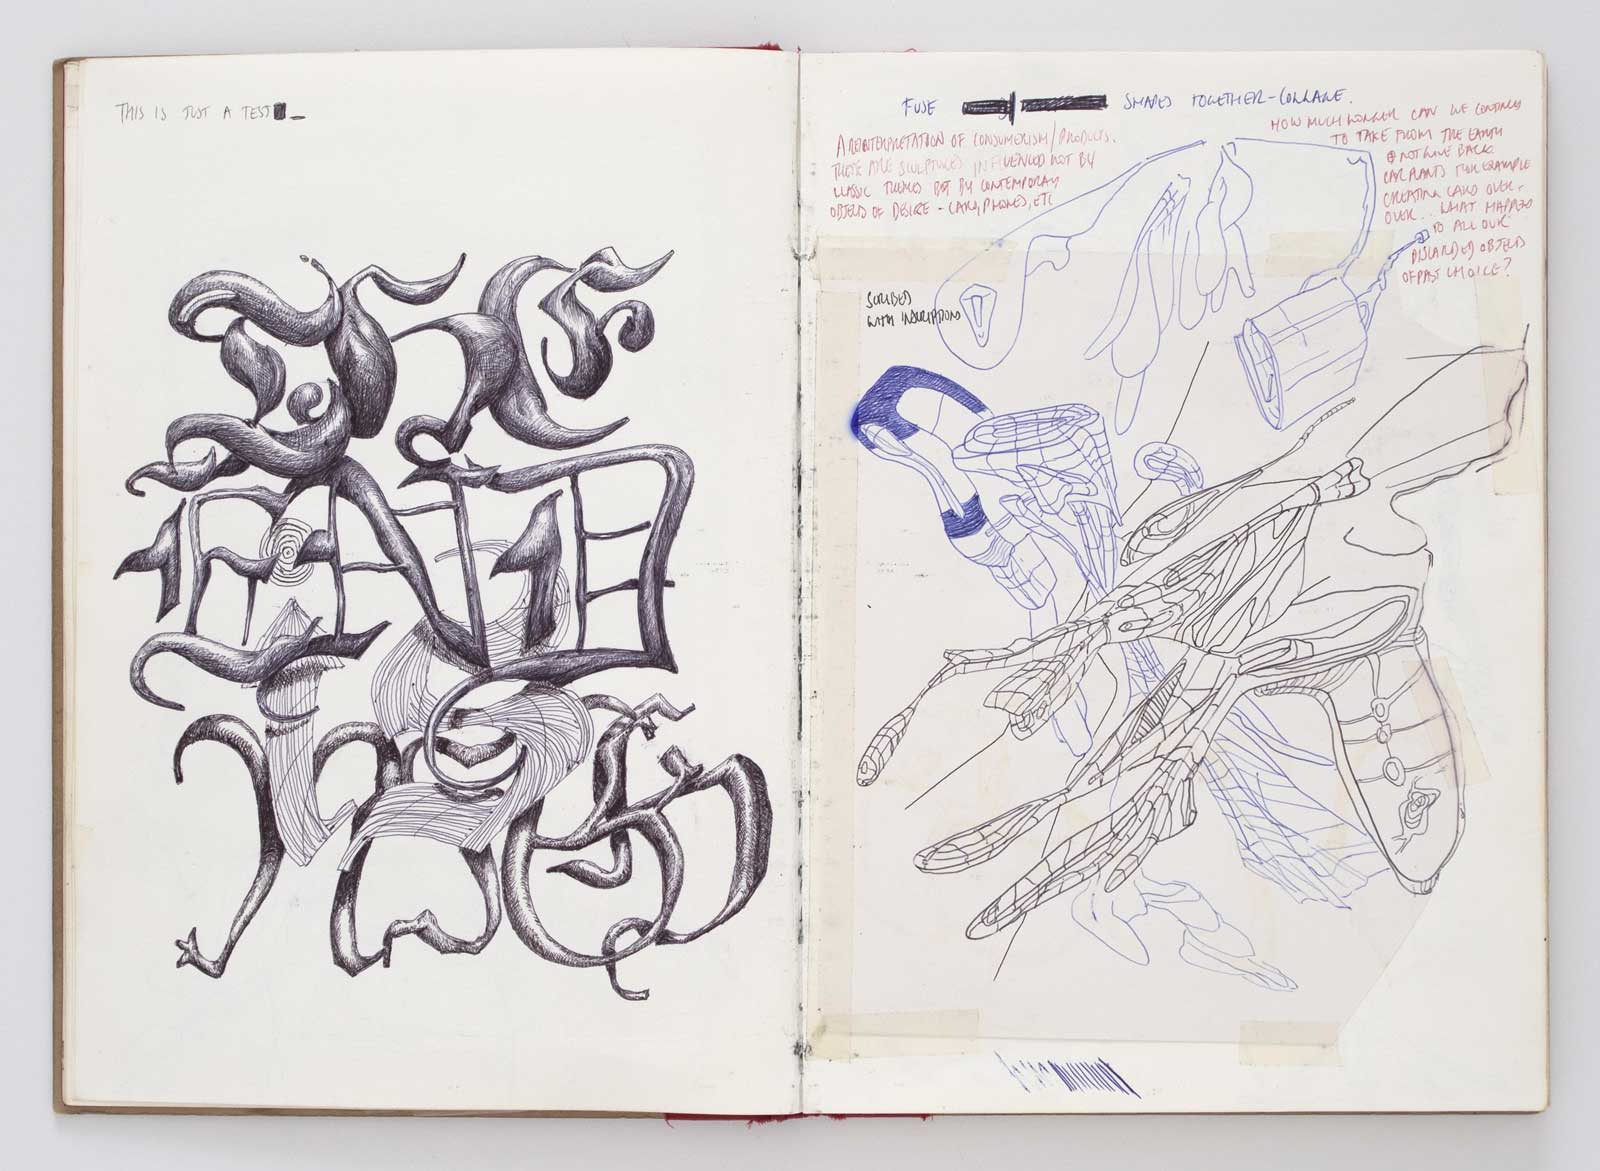 THIS IS JUST A TEST
FUSE SHAPES TOGETHER - COLLAGE.
A REINTERPRETATION OF CONSUMERISM/PRODUCTS.
THESE ARE SCULPTURES INFLUENCED NOT BY
CLASSIC THEMES BUT BY CONTEMPORARY
OBJECTS OF DESIRE - CARS, PHONES, ETC
HOW MUCH LONGER CAN WE CONTINUE
TO TAKE FROM THE EARTH
& NOT GIVE BACK
CAR PLANTS FOR EXAMPLE
CREATING CARS OVER +
OVER.. WHAT HAPPENS
TO ALL OUR
DISCARDED OBJECTS
OF PAST CHOICE?
SCRIBED
WITH INSCRIPTIONS
THE